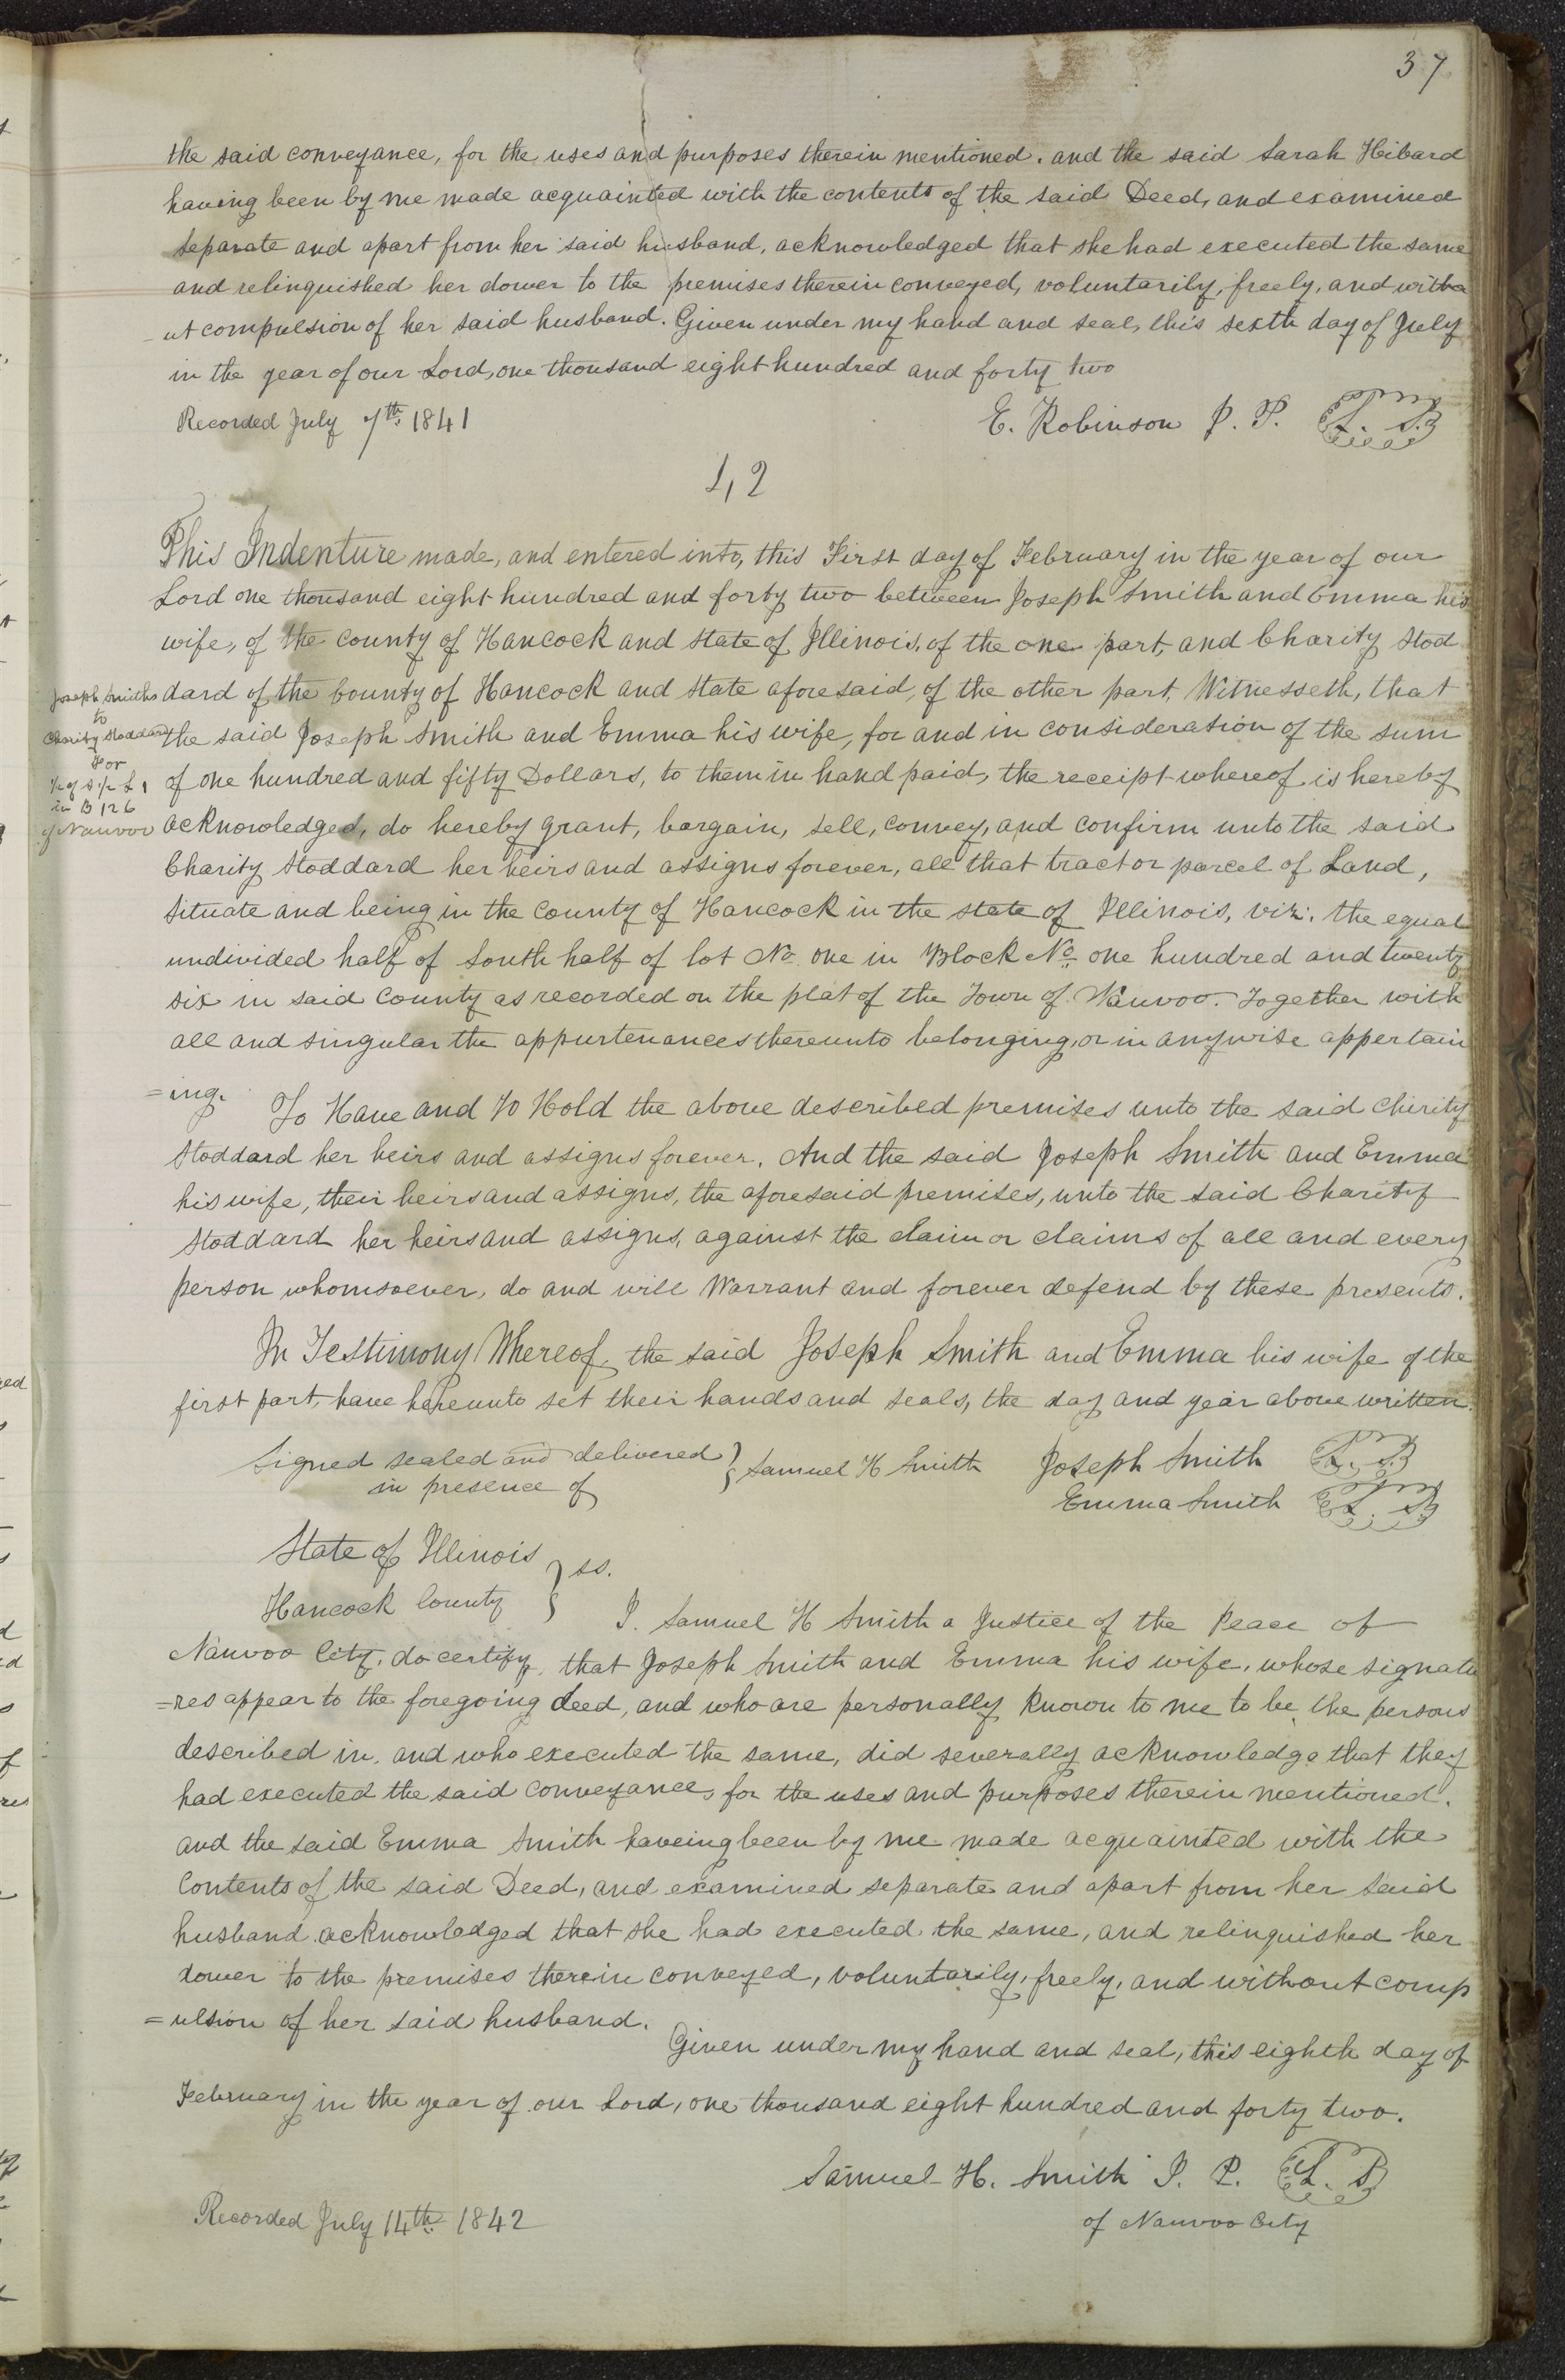 37
the said conveyance, for the uses and purposes therein mentioned. and the said Sarah Hibard
having been by me made acquainted with the contents of the said Deed, and examined
separate and apart from her said husband, acknowledged that she had executed the same
and relinquished her dower to the premises therein conveyed, voluntarily, freely, and witho
-ut compulsion of her said husband. Given under my hand and seal, this sexth day of July
in the year of our Lord, one thousand eight hundred and forty two
Recorded July 7th. 1841
E. Robinson J. P. L. S.
42
This Indenture made, and entered into, this First day of February in the year of our
Lord one thousand eight hundred and forty two between Joseph Smith and Emma his
wife, of the County of Hancock and State of Illinois, of the one part, and Charity Stod
dard of the County of Hancock and State aforesaid, of the other part, Witnesseth, that
the said Joseph Smith and Emma his wife, for and in consideration of the sum
of one hundred and fifty Dollars, to them in hand paid, the receipt whereof is hereby
acknowledged, do hereby grant, bargain, sell, convey, and confirm unto the said
Charity Stoddard her heirs and assigns forever, all that tract or parcel of Land,
Situate and being in the County of Hancock in the State of Illinois, viz: the equal
undivided half of South half of lot No. one in Block No. one hundred and twenty
six in said County as recorded on the plat of the Town of Nauvoo. Together with
all and singular the appurtenances thereunto belonging, or in anywise appertain
=ing. To Have and To Hold the above described premises unto the said Chirity
Stoddard her heirs and assigns forever. And the said Joseph Smith and Emma
his wife, their heirs and assigns, the aforesaid premises, unto the said Charity
Stoddard her heirs and assigns, against the claim or claims of all and every
person whomsoever, do and will Warrant and forever defend by these presents.
In Testimony Whereof, the said Joseph Smith and Emma his wife of the
first part, have hereunto set their hands and seals, the day and year above written.
Joseph Smiths
to
Charity Stoddard
For
in B 126
of Nauvoo
Signed sealed and delivered } Samuel H Smith Joseph Smith L. S.
in presence of
Emma Smith L. S.
State of Illinois } ss.
Hancock County
I. Samuel H Smith a Justice of the Peace of
Nauvoo City, do certify, that Joseph Smith and Emma his wife, whose signatu
=res appear to the foregoing deed, and who are personally known to me to be the persons
described in, and who executed the same, did severally acknowledge that they
had executed the said conveyance, for the uses and purposes therein mentioned.
and the said Emma Smith haveing been by me made acquainted with the
Contents of the said Deed, and examined separate and apart from her said
husband acknowledged that she had executed the same, and relinquished her
dower to the premises therein conveyed, voluntarily, freely, and without comp
=ulsion of her said husband.
Given under my hand and seal, this eighth day of
February in the year of our Lord, one thousand eight hundred and forty two.
Samuel H. Smith J. P. L. S.
of Nauvoo City
Recorded July 14th. 1842